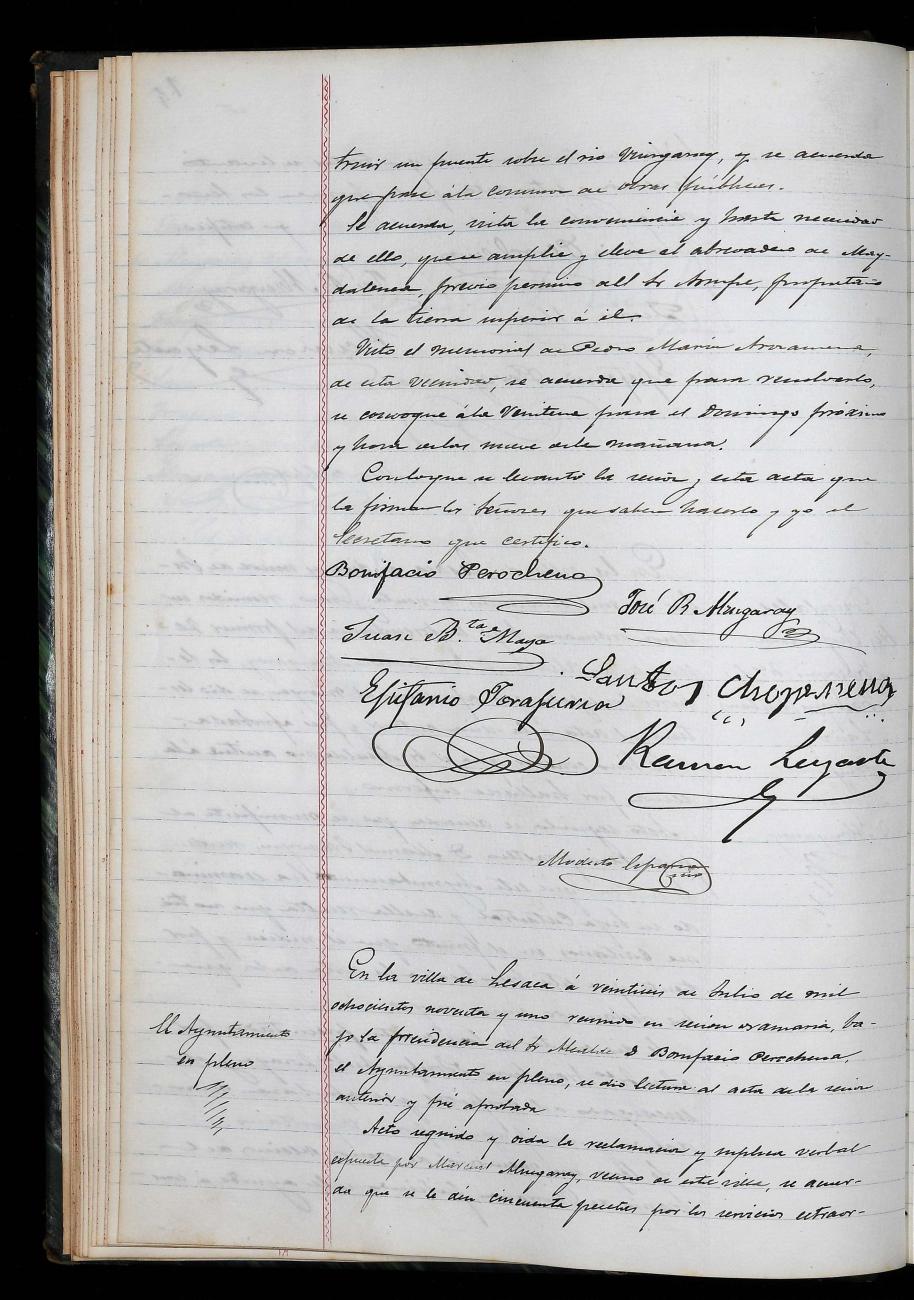 truir un puente sobre el rio Viurgaray, y se acuerda
que pase á la comision de obras públicas.
Se acuerda, vista la conveniencia y hasta necesidad
de ello, que se amplie y eleve el abrevadero de Mag-
dalenea, previo permiso del Sr propietario
de la tierra superior á él.
Visto el memorial de Pedro María
de esta vecindad, se acuerda que para resolverlo,
se convoque á la Veintena para el Domingo próximo
y hora de las nueve de la mañana.
Con lo que se levantó la sesion y esta acta que
la firman los Señores que saben hacerlo y yo el
Secretario que certifico.
Bonifacio Perochena
José B Almgaray
Juan B.ta Maya
Santos Choperena
Epifanio Torafuria
Ramon Leyarte
Modesto
En la villa de Lesaca á veintiseis de Julio de mil
ochocientos noventa y uno reunido en sesion ordinaria, ba-
jo la presidencia del Sr Alcalde D Bonifacio Perochena,
El Ayuntamiento
en pleno
el Ayuntamiento en pleno, se dió lectura al acta de la sesion
anterior y fué aprobada
Acto seguido y oida la reclamacion y suplica verbal
expuesta por Marcial Almgaray, vecino de esta villa, se acuer-
da que se le den cincuenta pesetas por los servicios extraor-